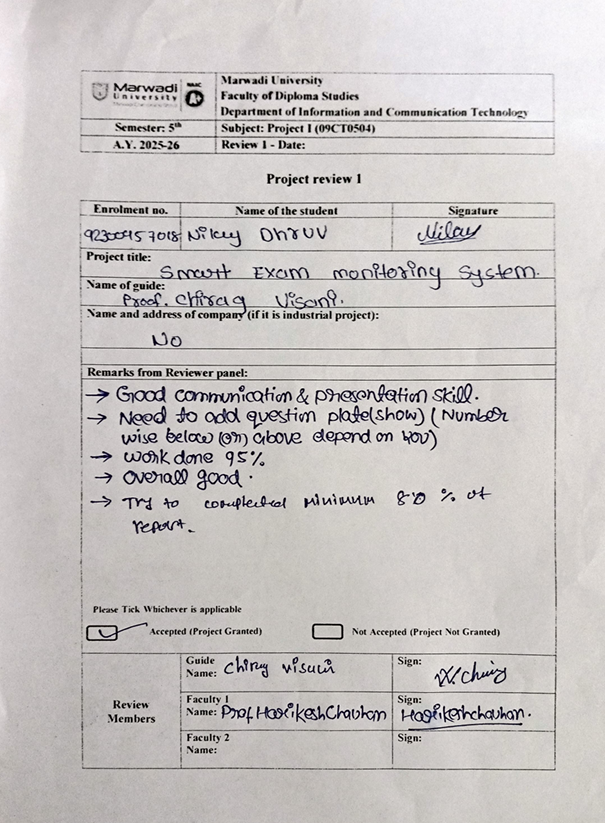 Marwadi University
NAAC A+
Marwadi University
Faculty of Diploma Studies
Department of Information and Communication Technology
Semester: 5th Subject: Project I (09CT0504)
A.Y. 2025-26 Review 1 - Date:
Project review 1
Enrolment no. Name of the student Signature
92300457018 Dhruv
Project title:
Smart Exam monitoring System.
Name of guide:
Prof. Chirag Visani.
Name and address of company (if it is industrial project):
No
Remarks from Reviewer panel:
→ Good communication & presentation skill.
→ Need to add question plate(show) (Number
wise below (or) above depend on you)
→ work done 95%
→ Overall good.
→ Try to completed minimum 80 % of
report.
Please Tick Whichever is applicable
Accepted (Project Granted) Not Accepted (Project Not Granted)
Review Members
Guide Name: Chirag visani Sign:
Faculty 1 Name: Prof Harikesh Chauhan Sign: Harikeshchauhan.
Faculty 2 Name: Sign: